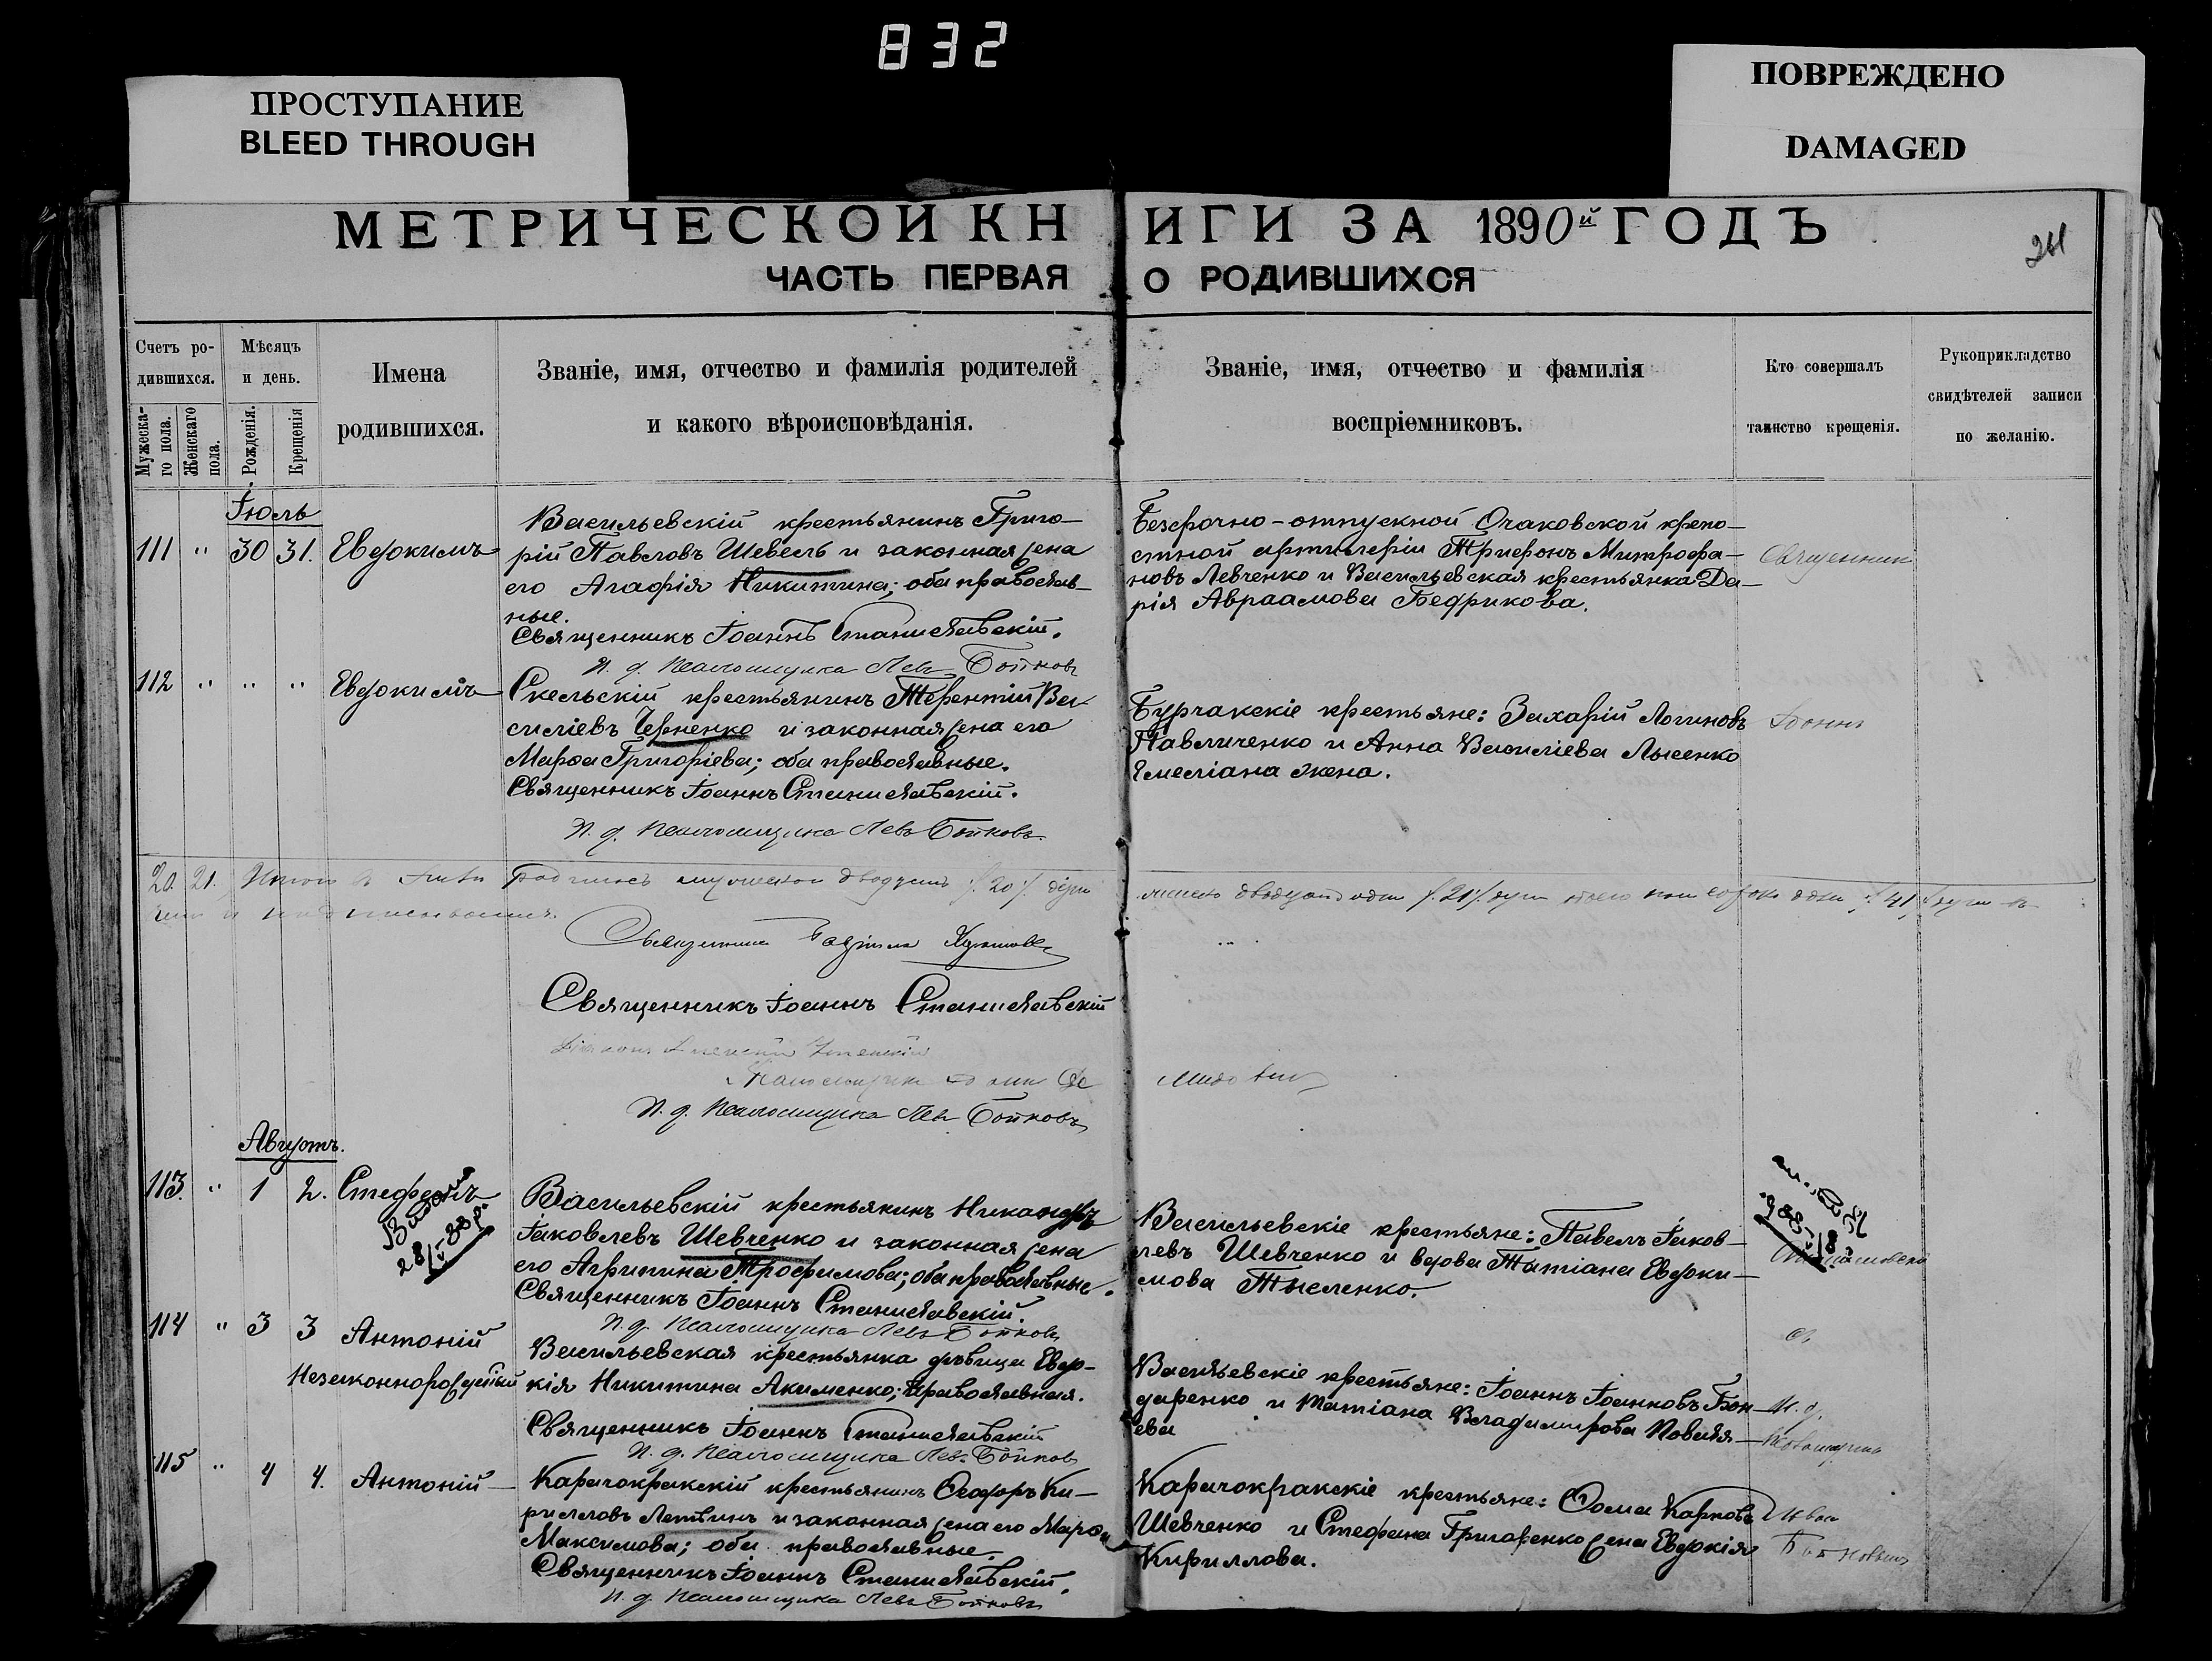 832
ПРОСТУПАНИЕ
BLEED THROUGH
ПОВРЕЖДЕНО
DAMAGED
МЕТРИЧЕСКОЙ КНИГИ ЗА 1890й ГОДЪ
ЧАСТЬ ПЕРВАЯ О РОДИВШИХСЯ
261
Счетъ ро-
дившихся.
Мужеска-
го пола.
Женскаго
пола.
Мѣсяцъ
и день.
Рожденія.
Крещенія
Имена
родившихся.
Званіе, имя, отчество и фамилія родителей
и какого вѣроисповѣданія.
Званіе, имя, отчество и фамилія
воспріемниковъ.
Кто совершалъ
таинство крещенія.
Рукоприкладство
свидѣтелей записи
по желанію.
Іюль
111 " 30 31. Евдокимъ
Васильевскій крестьянинъ Григо-
рій Павловъ Шевель и законная жена
его Агафія Никитина; оба православ-
ные.
Священникъ Іоаннъ Станиславскій.
И. д. псаломщика Левъ Бойковъ
Безсрочно-отпускной Очаковской крепо-
стной артилеріи Трифонъ Митрофа-
новъ Левченко и Васильевская крестьянка Да-
рія Авраамова Бедрикова.
Священник
112 " " " Евдокимъ
Скельскій крестьянинъ Терентій Ва-
силіевъ Черненко и законная жена его
Марфа Григоріева; оба православные.
Священникъ Іоаннъ Станиславскій.
И. д. псаломщика Левъ Бойковъ
Бурчакскіе крестьяне: Захарій Логиновъ
Павличенко и Анна Василіева Лысенко
Емеліана жена.
Іоаннъ
20. 21. Итого въ родилось мужеска двадцать /20/ душъ
женска двадцать одна /21/ душа всего сорокъ одна /41/ душа
Священникъ
Священникъ Іоаннъ Станиславскій
Діаконъ
Псаломщикъ
И. д. псаломщика Левъ Бойковъ
Августъ.
113. " 1 2. Стефанъ
28/V-38р.
Васильевскій крестьянинъ Никандръ
Іаковлевъ Шевченко и законная жена
его Агрипина Трофимова; оба православные.
Священникъ Іоаннъ Станиславскій.
И. д. псаломщика Левъ Бойковъ
Васильевскіе крестьяне: Павелъ Іаков-
левъ Шевченко и вдова Татіана Евдоки-
мова Тысленко.
Станиславскій
114 " 3 3 Антоній
Незаконнорожденный
Васильевская крестьянка дѣвица Евдо-
кія Никитина Акименко; православная.
Священникъ Іоаннъ Станиславскій
И. д. псаломщика Левъ Бойковъ
Васильевскіе крестьяне: Іоаннъ Іоанновъ Бон-
даренко и Татіана Владимирова Ковали-
ева
съ
И. д.
псаломщика
115 " 4 4. Антоній
Карачокракскій крестьянинъ Ѳеодоръ Ки-
рилловъ Летвинъ и законная жена его Марфа
Максимова; оба православные.
Священникъ Іоаннъ Станиславскій.
И. д. псаломщика Левъ Бойковъ
Карачокракскіе крестьяне: Ѳома Карповъ
Шевченко и Стефана Григаренко жена Евдокія
Кириллова.
Бойковымъ